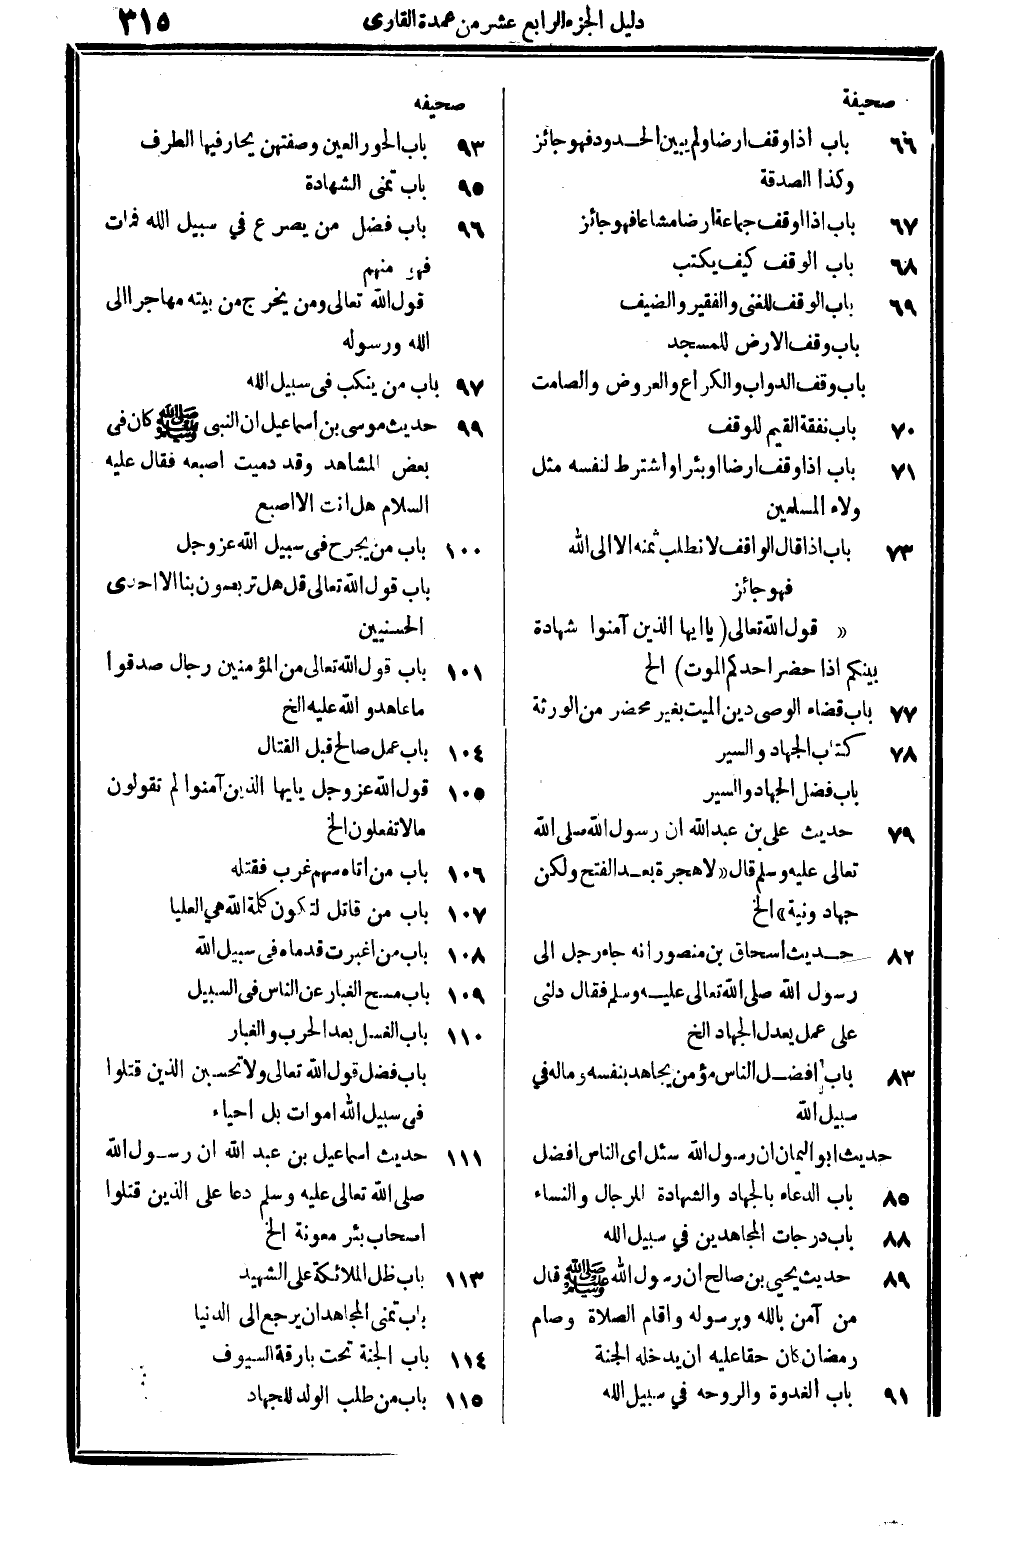 دليل الجزء الرابع عشر من عمدة القارى
٣١٥
صحيفة
٦٦ باب أذا وقف ارضا ولم يبين الحدود فهو جائز
وكذا الصدقة
٦٧ باب اذا اوقف جماعة أرضا مشاعا فهو جائز
٦٨ باب الوقف كيف يكتب
٦٩ باب الوقف للغنى والفقير والضيف
باب وقف الارض للمسجد
باب وقف الدواب والكراع والعروض والصامت
٧٠ باب نفقة القيم للوقف
٧١ باب اذا وقف ارضا او بئرا وأشترط لنفسه مثل
ولاء المسلمين
٧٣ باب اذا قال الواقف لا نطلب ثمنه الا الى الله
فهو جائز
« قول الله تعالى ( يا ايها الذين آمنوا شهادة
بينكم اذا حضر احدكم الموت) الخ
٧٧ باب قضاء الوصى دين الميت بغير محضر من الورثة
٧٨ كتاب الجهاد والسير
باب فضل الجهاد والسير
٧٩ حديث على بن عبد الله ان رسول الله صلى الله
تعالى عليه وسلم قال «لا هجرة بعد الفتح ولكن
جهاد ونية» الخ
٨٢ حديث أسحاق بن منصور انه جاء رجل الى
رسول الله صلى الله تعالى عليه وسلم فقال دلنى
على عمل يعدل الجهاد الخ
٨٣ باب افضل الناس مؤمن يجاهد بنفسه وماله في
سبيل الله
حديث ابو اليمان ان رسول الله سئل اى الناس افضل
٨٥ باب الدعاء بالجهاد والشهادة للرجال والنساء
٨٨ باب درجات المجاهدين في سبيل الله
٨٩ حديث يحيى بن صالح ان رسول الله ﷺ قال
من آمن بالله وبرسوله وأقام الصلاة وصام
رمضان كان حقا عليه ان يدخله الجنة
٩١ باب الغدوة والروحه في سبيل الله
صحيفه
٩٣ باب الحور العين وصفتهن يحار فيها الطرف
٩٥ باب تمنى الشهادة
٩٦ باب فضل من يصرع في سبيل الله فمات
فهو منهم
قول الله تعالى ومن يخرج من بيته مهاجرا الى
الله ورسوله
٩٧ باب من ينكب فى سبيل الله
٩٩ حديث موسى بن أسماعيل ان النبى ﷺ كان فى
بعض المشاهد وقد دميت اصبعه فقال عليه
السلام هل انت الا اصبع
١٠٠ باب من يجرح فى سبيل الله عز وجل
باب قول الله تعالى قل هل تربصون بنا الا احدى
الحسنيين
١٠١ باب قول الله تعالى من المؤمنين رجال صدقوا
ما عاهدو الله عليه الخ
١٠٤ باب عمل صالح قبل القتال
١٠٥ قول الله عز وجل يايها الذين آمنوا لم تقولون
مالا تفعلون الخ
١٠٦ باب من أتاه سهم غرب فقتله
١٠٧ باب من قاتل لتكون كلمة الله هي العليا
١٠٨ باب من اغبرت قدماه فى سبيل الله
١٠٩ باب مسح الغبار عن الناس فى السبيل
١١٠ باب الغسل بعد الحرب والغبار
باب فضل قول الله تعالى ولا تحسبن الذين قتلوا
فى سبيل الله اموات بل احياء
١١١ حديث اسماعيل بن عبد الله ان رسول الله
صلى الله تعالى عليه وسلم دعا على الذين قتلوا
اصحاب بئر معونة الخ
١١٣ باب ظل الملائكة على الشهيد
باب تمنى المجاهد ان يرجع الى الدنيا
١١٤ باب الجنة تحت بارقة السيوف
١١٥ باب من طلب الولد للجهاد